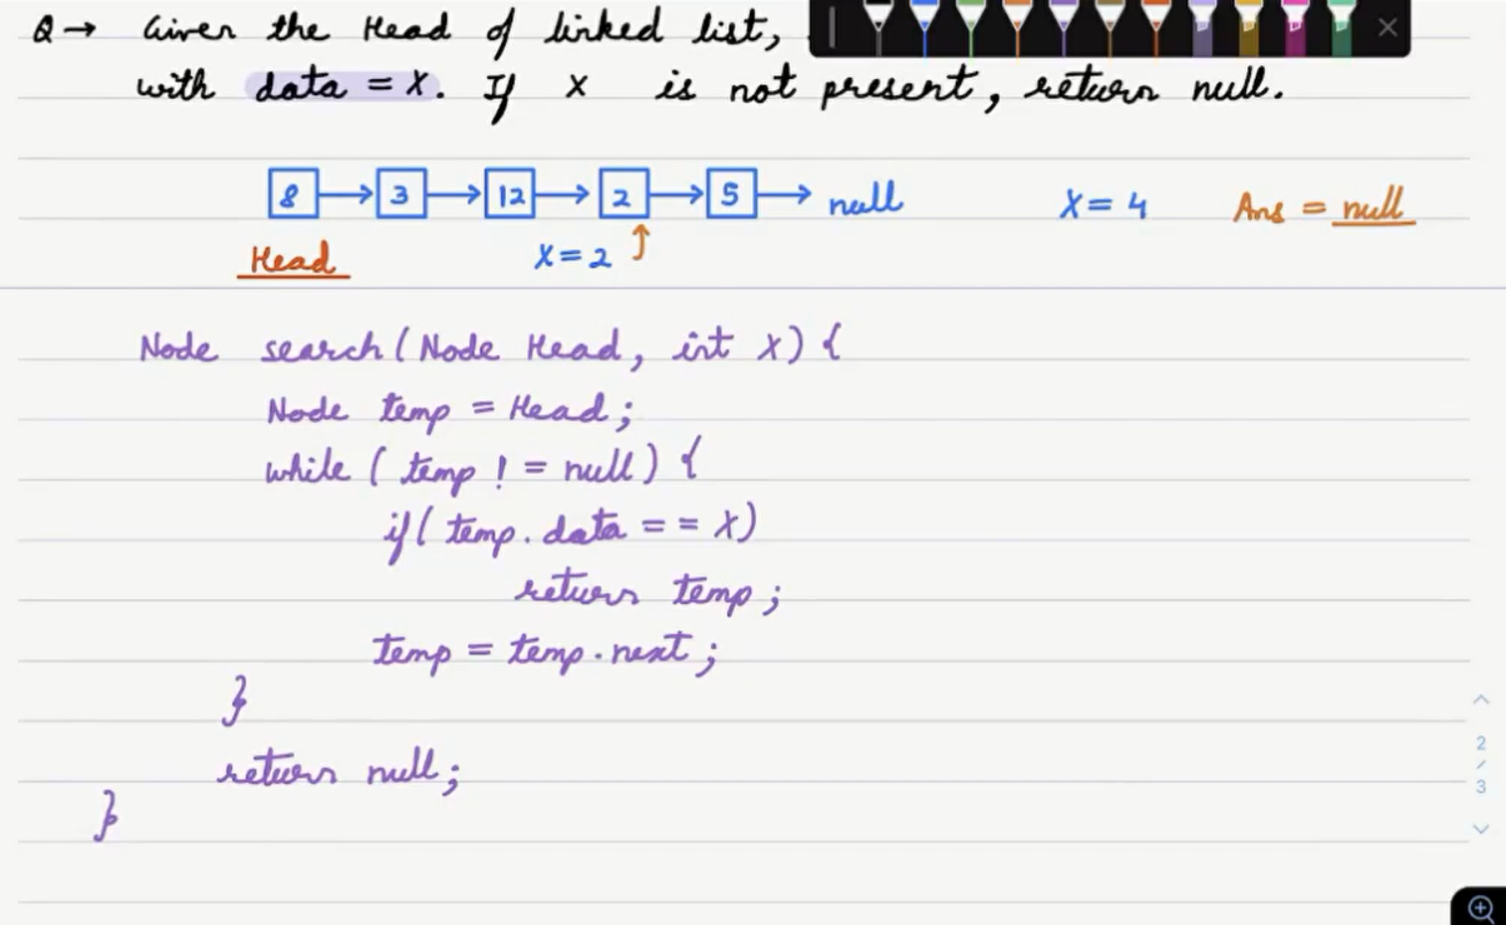 Q→ Given the Head of linked list,
with data = X. If X is not present, return null.
8 → 3 → 12 → 2 → 5 → null X = 4 Ans = null
Head X = 2 ↑
Node search(Node Head, int X) {
Node temp = Head;
while ( temp != null) {
if( temp.data == X)
return temp;
temp = temp.next;
}
return null;
}
2
/
3